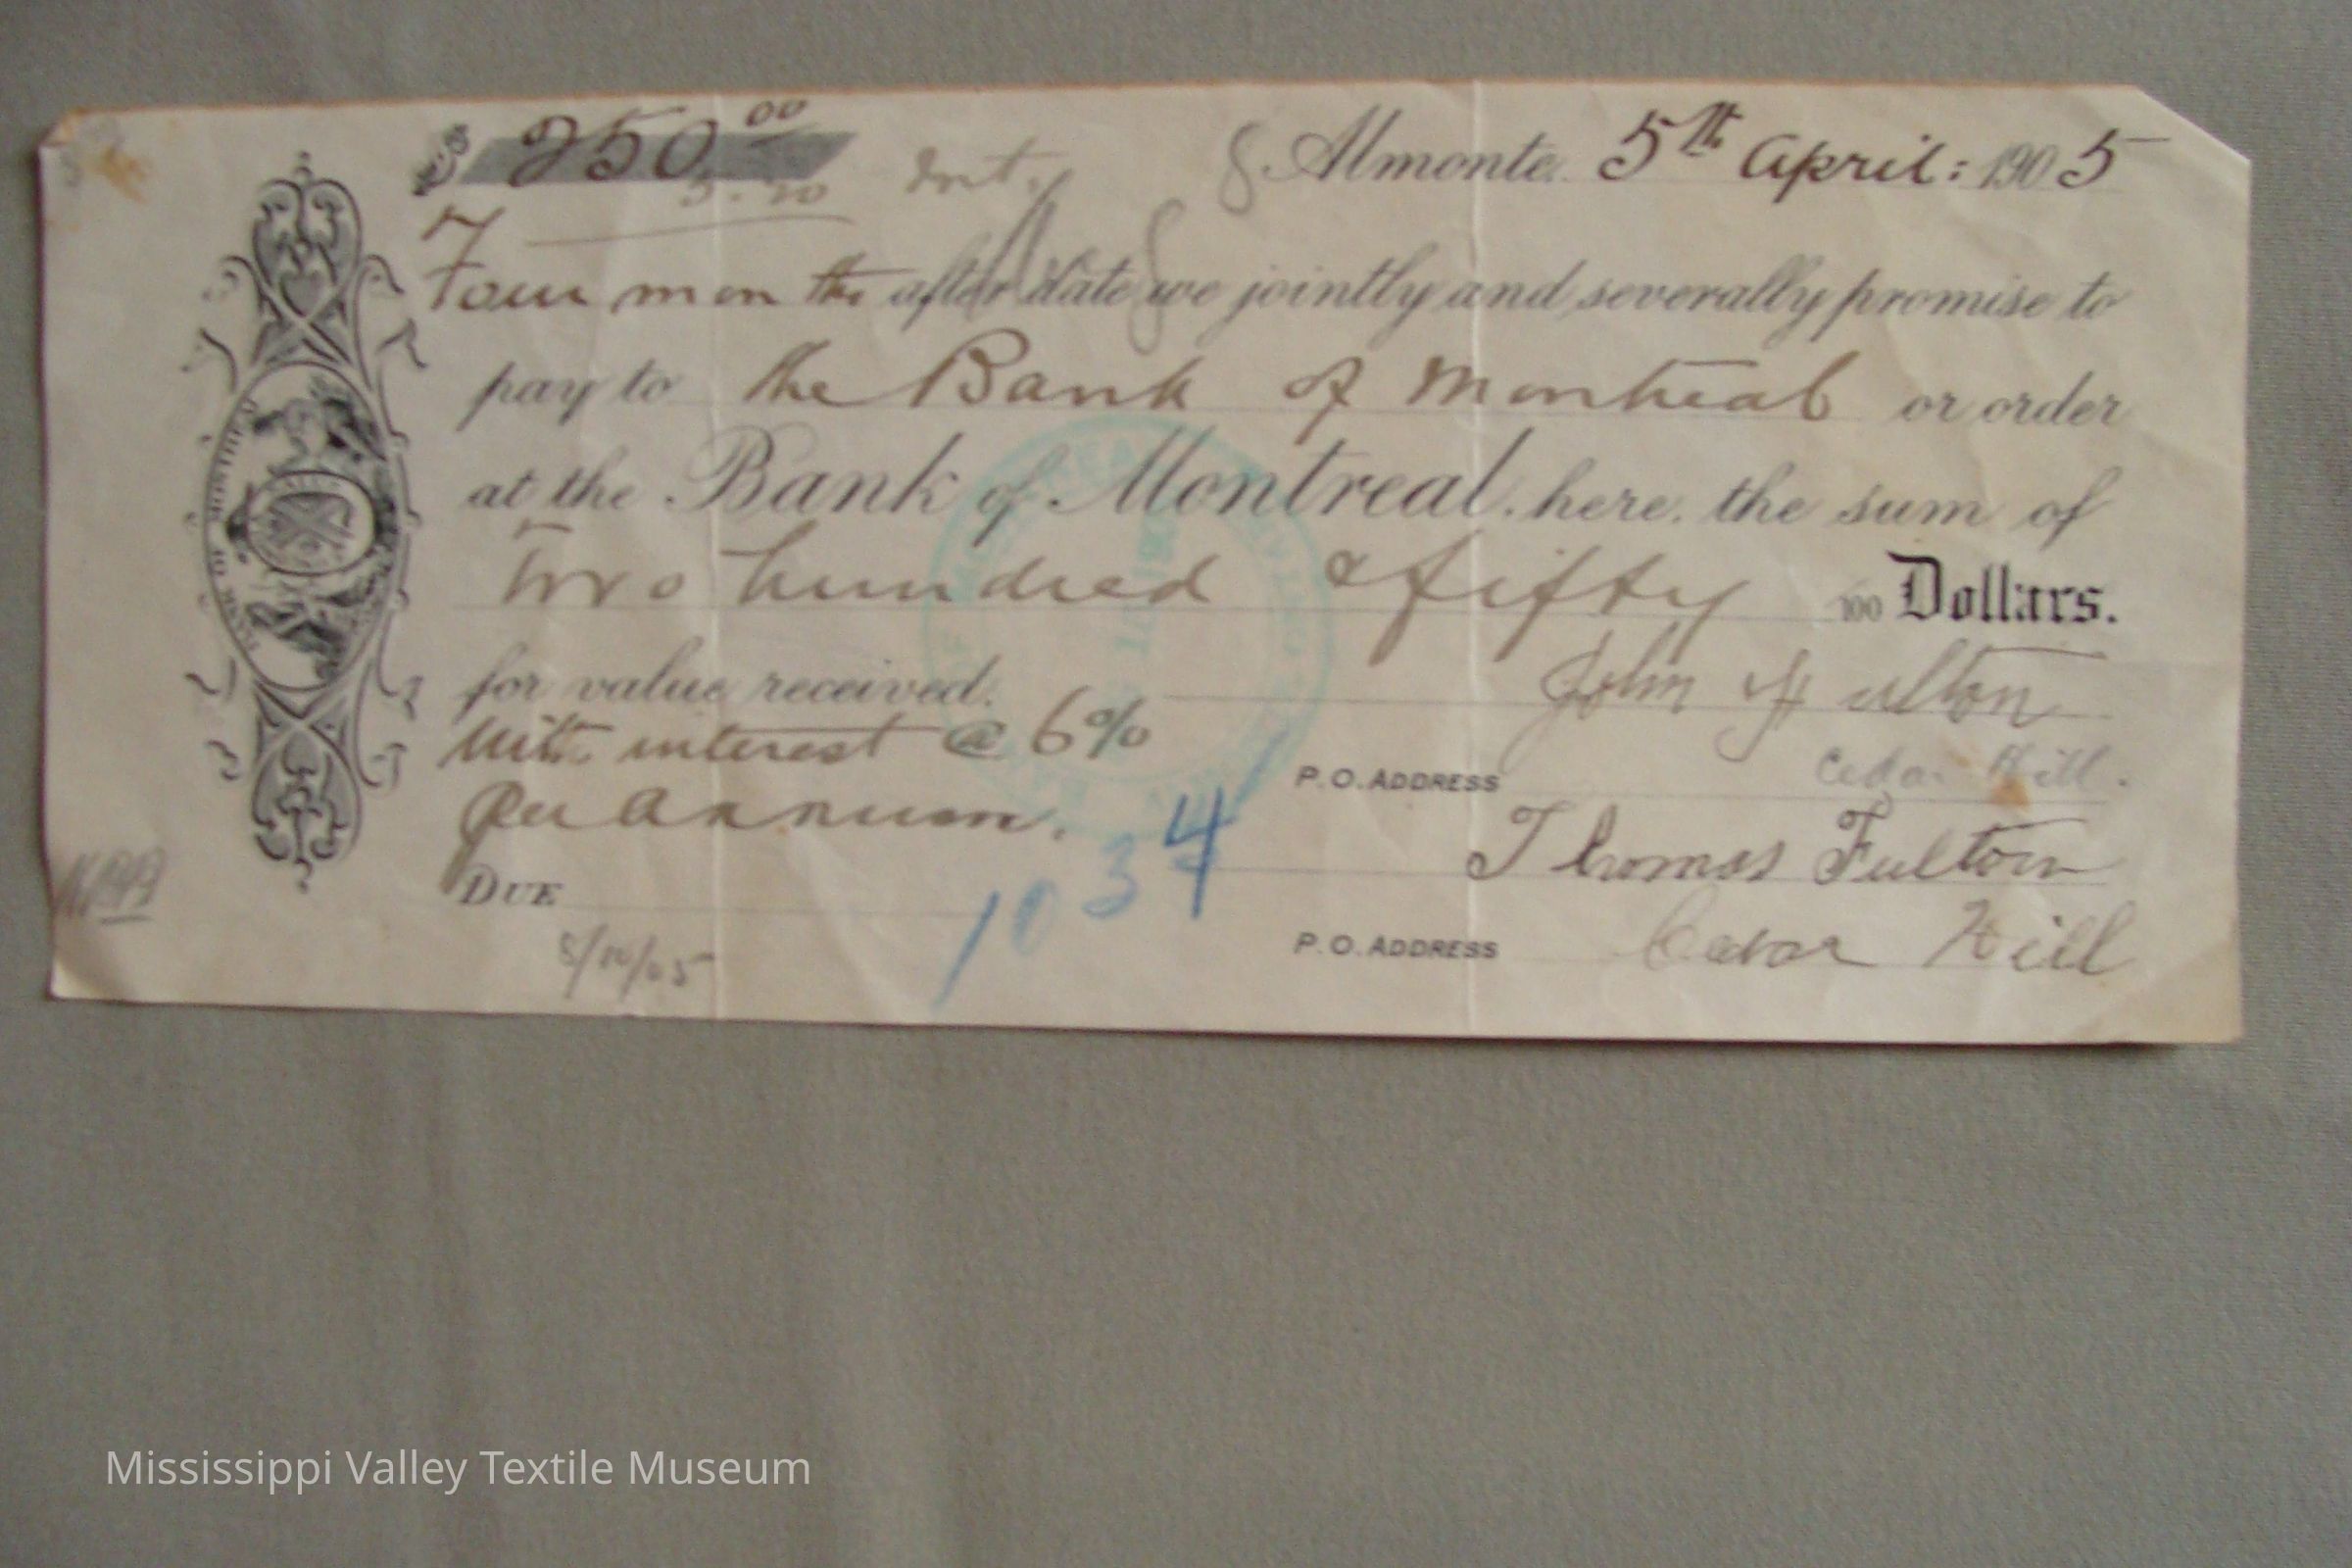 $ 250.00 Almonte. 5th April: 1905
5.20 Int.
Four months after date we jointly and severally promise to
pay to the Bank of Montreal or order
at the Bank of Montreal. here. the sum of
Two hundred & fifty 100 Dollars.
for value received. John Fulton
With interest @ 6%
P.O. ADDRESS Cedar Hill.
Per Annum.
Thomas Fulton
1034
DUE
P.O. ADDRESS Cedar Hill
BANK OF MONTREAL
Mississippi Valley Textile Museum